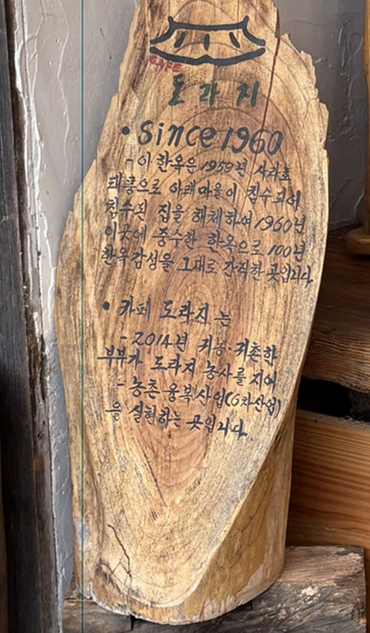 CAFE
도라지
• Since 1960
- 이 한옥은 1959년 사라호
태풍으로 아래마을이 침수되어
침수된 집을 해체하여 1960년
이곳에 중수한 한옥으로 100년
한옥감성을 그대로 간직한 곳입니다
• 카페 도라지는
- 2014년 귀농·귀촌한
부부가 도라지 농사를 지어
- 농촌융복사업(6차산업)
을 실현하는 곳입니다.